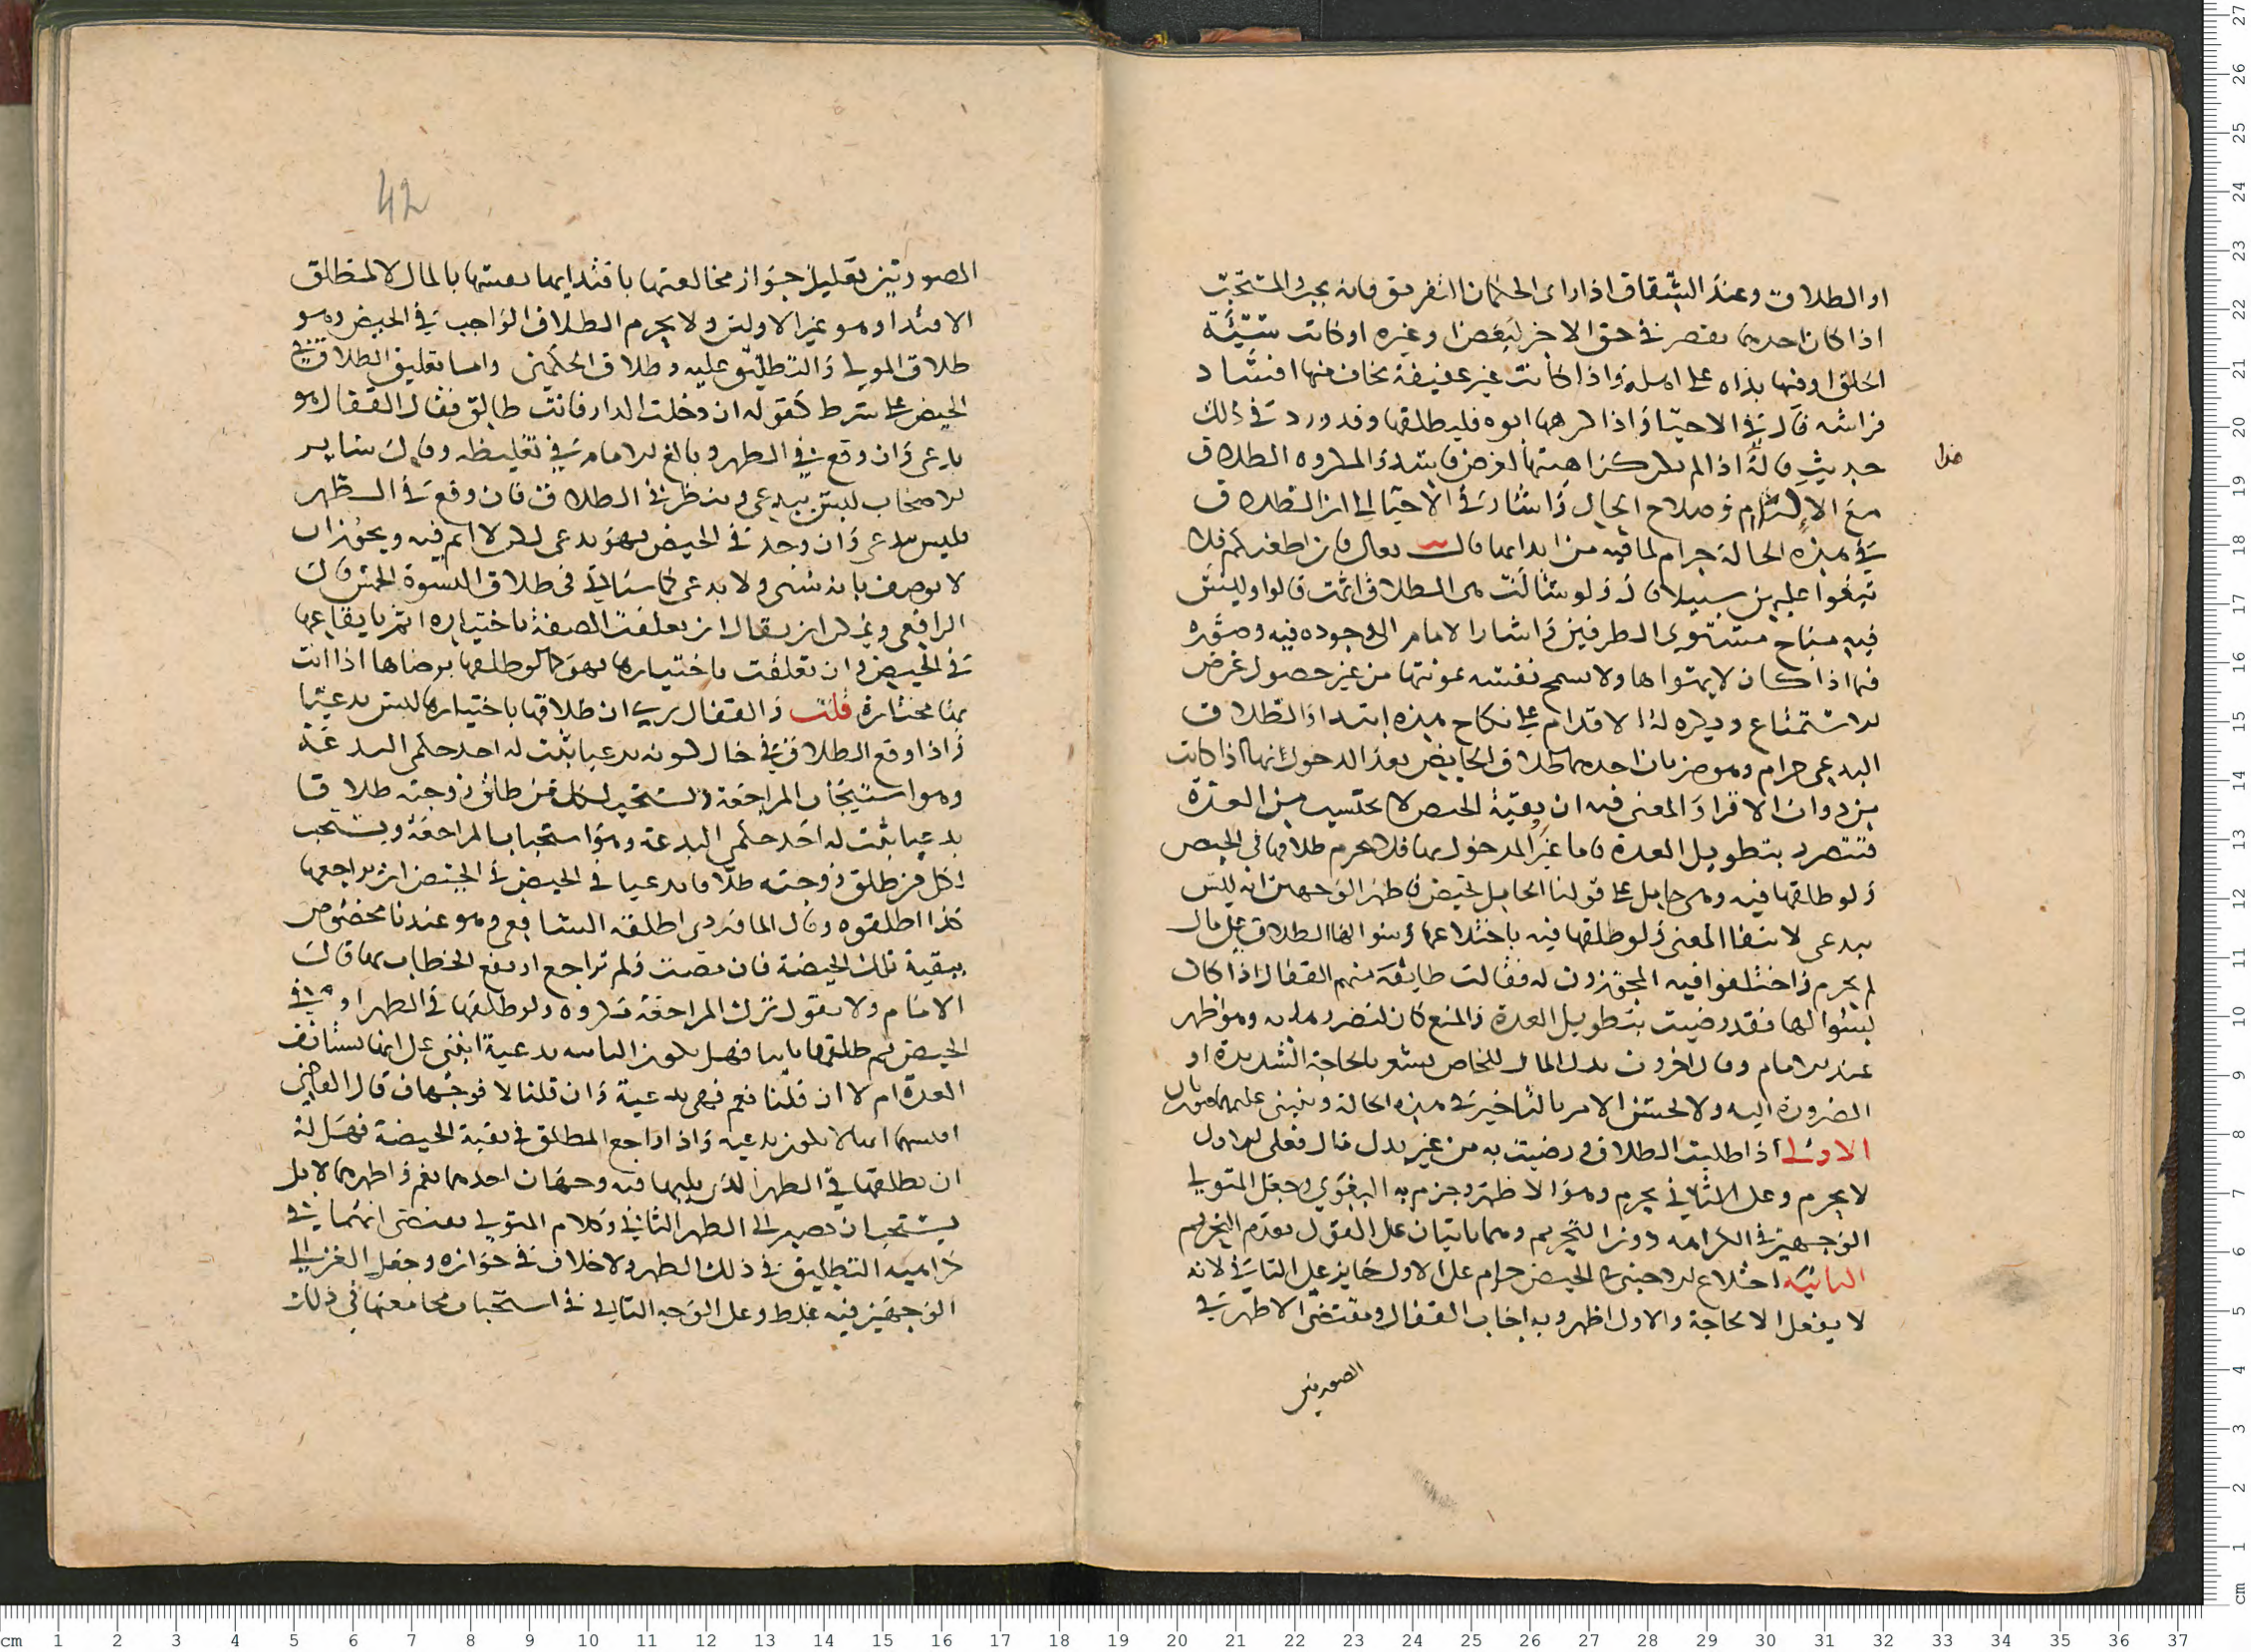 او الطلاق وعند الشقاق اذا راى الحكمان التفريق فانه يجب والمستحب
اذا كان احدهما يقصر في حق الاخر لبغض او غيره او كانت سيئة
الخلق او فيها بذاه على اهله واذا كانت غير عفيفة يخاف منها افساد
فراشه قال في الاحيا واذا كرهها ابوه فليطلقها وقد ورد في ذلك
حديث قال اذا لم يكن كراهيتها لغرض فاسد والمكروه الطلاق
هذا
مع الالتيام وصلاح الحال واشار في الاحيا الى ان الطلاق
في هذه الحالة حرام لما فيه من ايذايها قال تعالى فان اطعنكم فلا
تبغوا عليهن سبيلا قال ولو سالت هى الطلاق اثمت قالوا وليس
فيه مباح مستوى الطرفين واشار الامام الى وجوده فيه وصوره
فيما اذا كان لا يهواها ولا تسمح نفسه بمونتها من غير حصول غرض
الاستمتاع ويكره له الاقدام على نكاح هذه ابتداء والطلاق
البدعى حرام وهو ضربان احدهما طلاق الحايض بعد الدخول بها اذا كانت
من ذوات الاقراء والمعنى فيه ان بقية الحيض لا تحتسب من العدة
فتتضرر بتطويل العدة فاما غير المدخول بها فلا يحرم طلاقها في الحيض
ولو طلقها فيه وهى حامل على قولنا الحامل تحيض فاظهر الوجهين انه ليس
ببدعى لانتفا المعنى ولو طلقها فيه باختلاعها او سوالها الطلاق على مال
لم يحرم واختلفوا فيه المجوزون له فقالت طايفة منهم القفال اذا كان
بسوالها فقد رضيت بتطويل العدة والمنع كان لتضررها به وهو اظهر
عند الامام وقال اخرون بذل المال للخلاص يشعر بالحاجة الشديدة او
الضرورة اليه ولا يحسن الامر بالتاخير في هذه الحالة وينبنى عليهما صورتان
الاولى اذا طلبت الطلاق ورضيت به من غير بدل مال فعلى الاول
لا يحرم وعلى الثاني يحرم وهو الاظهر وجزم به البغوي وجعل المتولي
الوجهين في الكراهه دون التحريم وهما ياتيان على القول بعدم التحريم
الثانية اختلاع الاجنبى في الحيض حرام على الاول جايز على الثاني لانه
لا يفعل الا لحاجة والاول اظهر وبه اجاب القفال ومقتضى الاظهر في
الصورتين
42
الصورتين تعليل جواز مخالعتها بافتدايها نفسها بالمال لا لمطلق
الافتداء وهو غير الاولين ولا يحرم الطلاق الواجب في الحيض وهو
طلاق المولي والتطليق عليه وطلاق الحكمين واما تعليق الطلاق في
الحيض على شرط كقوله ان دخلت الدار فانت طالق فقال القفال هو
بدعى وان وقع في الطهر وبالغ الامام في تغليظه وقال ساير
الاصحاب ليس ببدعى وينظر في الطلاق فان وقع في الطهر
فليس ببدعى وان وجد في الحيض فهو بدعى لكن لا اثم فيه ويجوز ان
لا يوصف بانه سنى ولا بدعى كما سياتي في طلاق النسوة الخمس قال
الرافعى ويمكن ان يقال ان تعلقت الصفة باختياره اثم بايقاعها
في الحيض وان تعلقت باختيارها فهو كما لو طلقها برضاها اذا اتت
بها مختارة قلت والقفال يرى ان طلاقها باختيارها ليس بدعيا
واذا اوقع الطلاق في حال كونه بدعيا يثبت له احد حكمى البدعة
وهو استحباب المراجعة ويستحب لكل من طلق زوجته طلاقا
بدعيا يثبت له احد حكمى البدعة وهو استحباب المراجعة ويستحب
لكل من طلق زوجته طلاقا بدعيا في الحيض في الحيض ان يراجعها
كذا اطلقوه وقال الماوردى اطلقه الشافعي وهو عندنا مخصوص
ببقية تلك الحيضة فان مضت ولم تراجع ارتفع الخطاب بها قال
الامام ولا نقول ترك المراجعة مكروه ولو طلقها في الطهر او في
الحيض ثم طلقها ثانيا فهل تكون الثانيه بدعية ابنى على انها تستانف
العدة ام لا ان قلنا نعم فهى بدعية وان قلنا لا فوجهان قال القاضي
اقيسهما انها لا تكون بدعيه واذا راجع المطلق في بقية الحيضة فهل له
ان يطلقها في الطهر الذى يليها فيه وجهان احدهما نعم واظهرهما لا بل
يستحب ان يصير الى الطهر الثاني وكلام المتولي يقتضى انهما في
كراهية التطليق في ذلك الطهر ولا خلاف في جوازه وجعل الغزالي
الوجهين فيه غلط وعلى الوجه الثاني في استحباب مجامعتها في ذلك